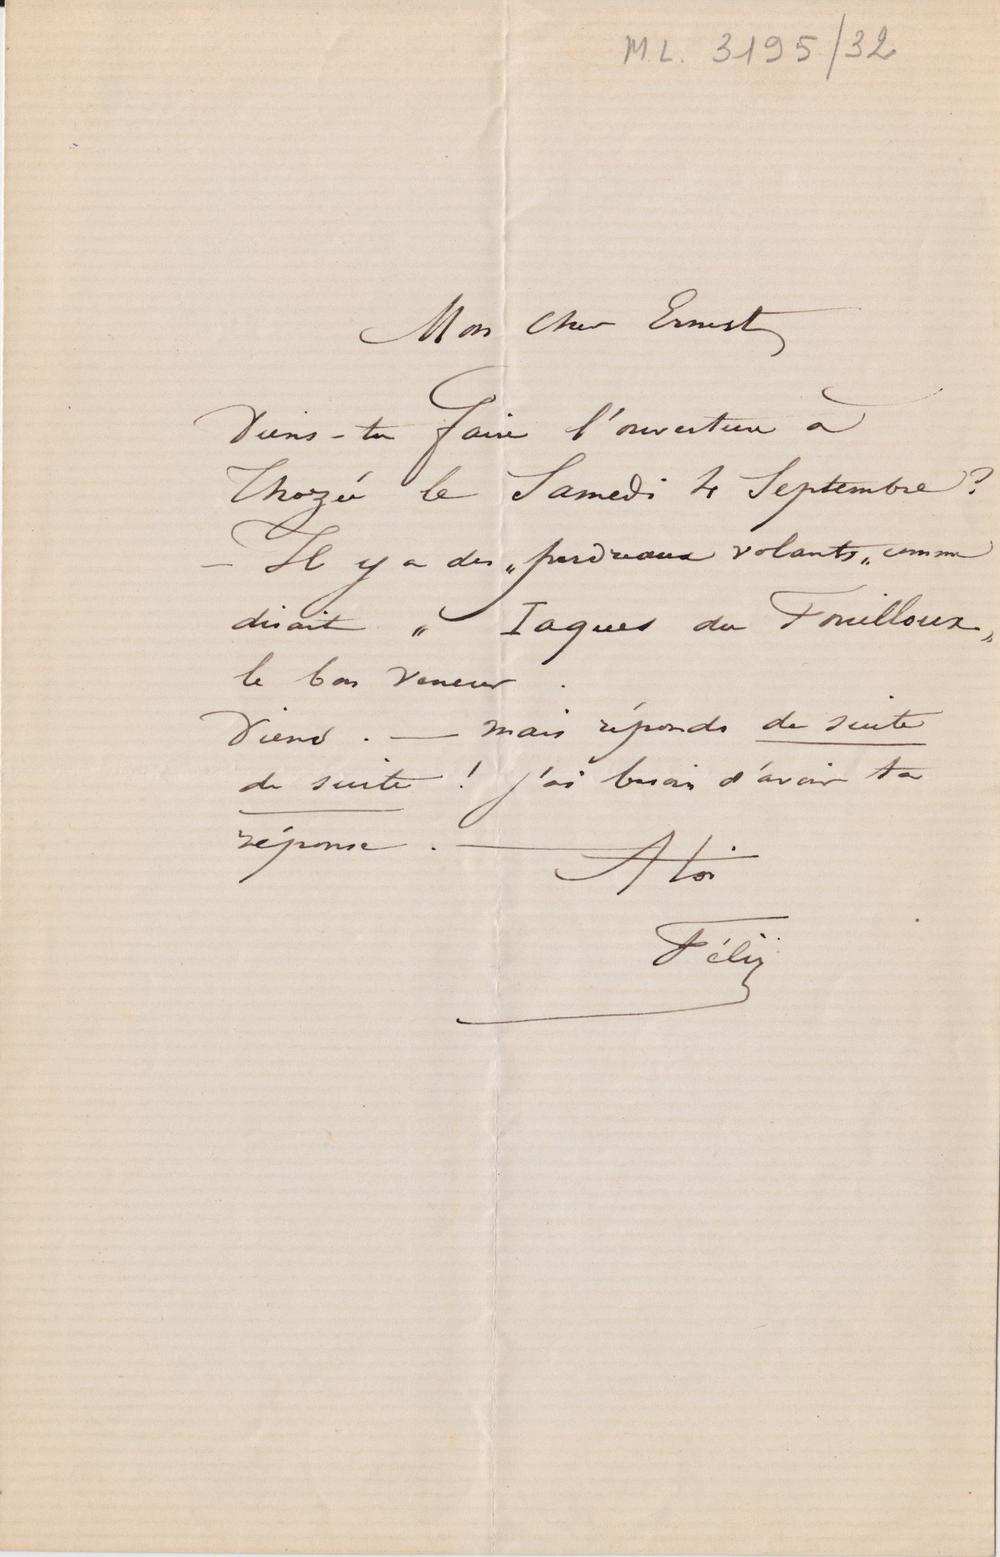 M.L. 3195/32
Mon cher Ernest
Viens-tu faire l'ouverture à
Thozée le Samedi 4 Septembre ?
– Il y a des „perdreaux volants„ comme
dirait „ Iaques du Fouilloux„
le bon veneur .
Viens . — mais réponds de suite
de suite ! j'ai besoin d'avoir ta
réponse . — A toi
Félix